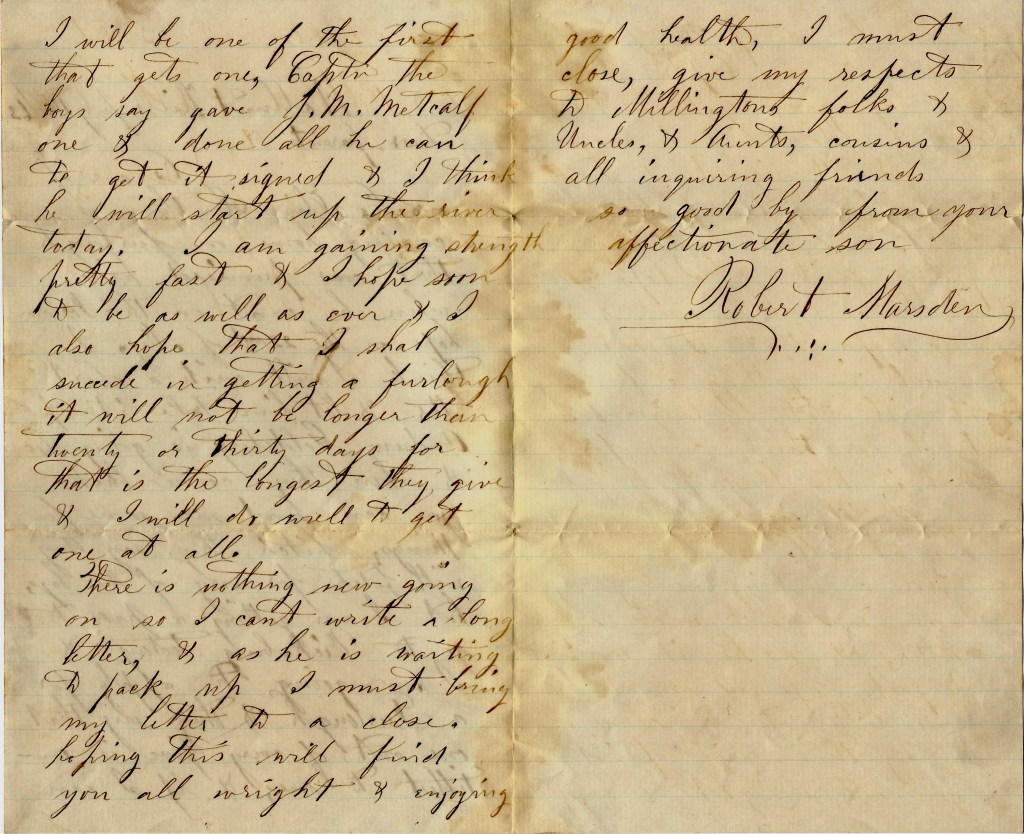 I will be one of the first
that gets one, Captn the
boys say gave J. M. Metcalf
one & done all he can
to get it signed & I think
he will start up the river
today. I am gaining strength
pretty fast & I hope soon
to be as well as ever & I
also hope that I shal
succede in getting a furlough
it will not be longer than
twenty or thirty days for
that is the longest they give
& I will do well to get
one at all.
There is nothing new going
on so I cant write a long
letter, & as he is waiting
to pack up I must bring
my letter to a close.
hoping this will find
you all wright & enjoying
good health, I must
close, give my respects
to Millingtons folks &
Uncles, & Aunts, cousins &
all inquiring friends
so good by from your
affectionate son
Robert Marsden